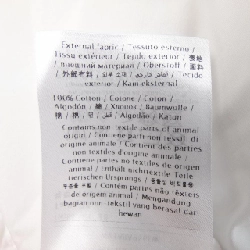 External fabric / Tessuto esterno /
Tissu extérieur / Tejido exterior / 表地
материал / Oberstoff / 面料
/ 外層布料 / Tecido
exterior / Kain eksternal
100% Cotton / Cotone / Coton /
Algodón / Хлопок / Baumwolle /
棉 / 棉 / Algodão / Katun
Contains non-textile parts of animal
origin / Contiene parti non tessili di
origine animale / Contient des parties
non textiles d'origine animale /
Contiene partes no textiles de origen
animal / Enthält nichttextile Teile
tierischen Ursprungs /
/ Contém partes não têxteis
de origem animal / Mengandung
bagian non tekstil yang berasal dari
hewan